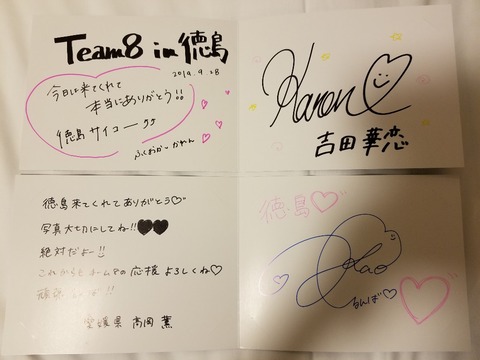 Team8 in 徳島
2019.9.28
今日は来てくれて
本当にありがとう!!
徳島サイコー
ふくおかかれん
Karen
吉田華恋
徳島来てくれてありがとう♡
写真大切にしてね!!♥♥
絶対だよー!!
これからもチーム8の応援よろしくね♡
愛媛県 高岡薫
徳島♡
なんば